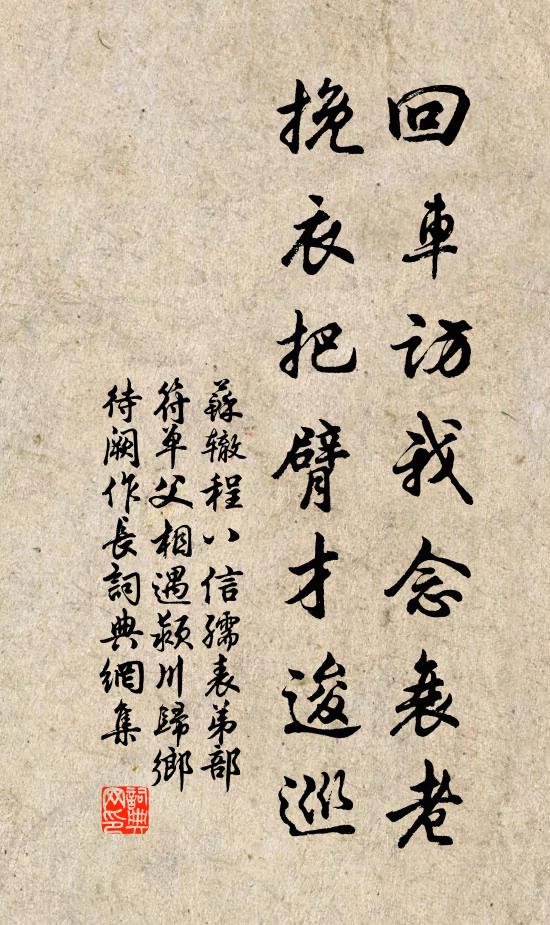 回車訪我念衰老
挽衣把臂才逡巡
蘇辙程八信孺表弟部
符单父相遇颍川歸鄉
待阙作長詞典網集
詞典网印